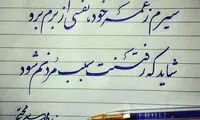 سیرم ز عمر خود، نفسی از برم برو
شاید که رفتنت سبب مردنم شود